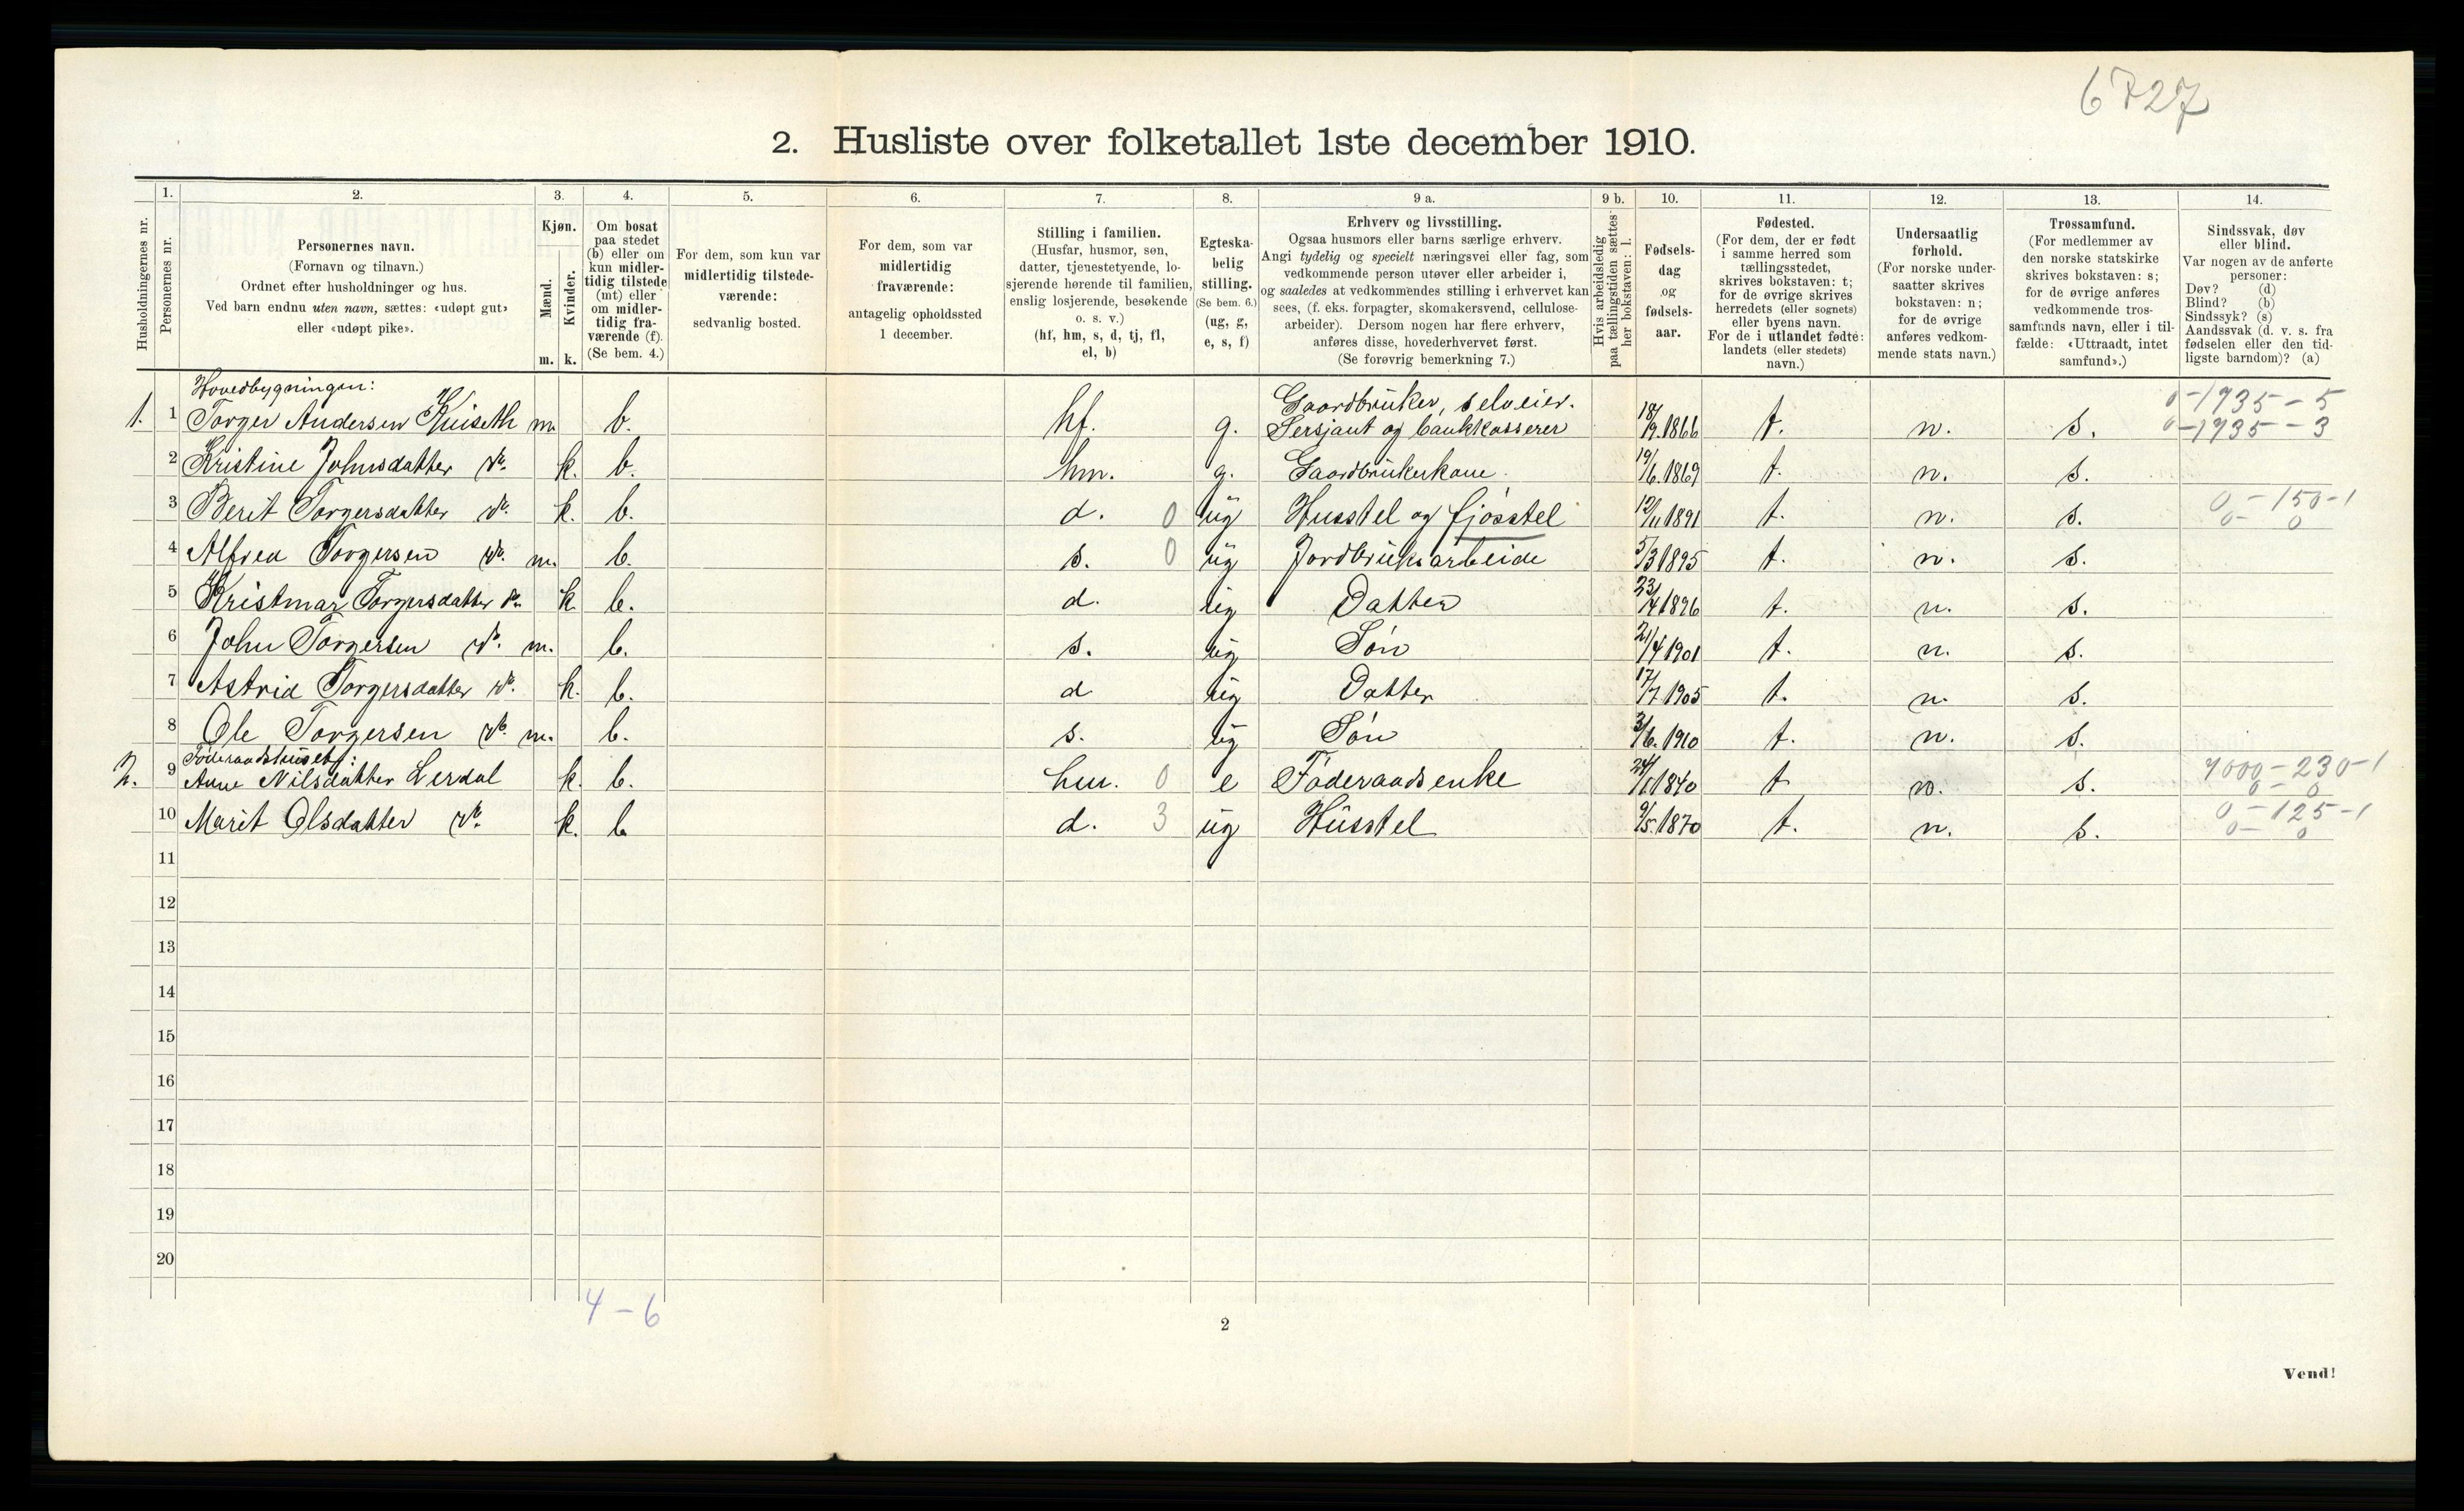 6727
2. Husliste over folketallet 1ste december 1910.
1. 2. 3. 4. 5. 6. 7. 8. 9 a. 9 b. 10. 11. 12. 13. 14.
Husholdningernes nr.
Personernes nr.
Personernes navn.
(Fornavn og tilnavn.)
Ordnet efter husholdninger og hus.
Ved barn endnu uten navn, sættes: «udøpt gut»
eller «udøpt pike».
Kjøn.
Mænd.
Kvinder.
m. k.
Om bosat
paa stedet
(b) eller om
kun midler-
tidig tilstede
(mt) eller
om midler-
tidig fra-
værende (f).
(Se bem. 4.)
For dem, som kun var
midlertidig tilstede-
værende:
sedvanlig bosted.
For dem, som var
midlertidig
fraværende:
antagelig opholdssted
1 december.
Stilling i familien.
(Husfar, husmor, søn,
datter, tjenestetyende, lo-
sjerende hørende til familien,
enslig losjerende, besøkende
o. s. v.)
(hf, hm, s, d, tj, fl,
el, b)
Egteska-
belig
stilling.
(Se bem. 6.)
(ug, g,
e, s, f)
Erhverv og livsstilling.
Ogsaa husmors eller barns særlige erhverv.
Angi tydelig og specielt næringsvei eller fag, som
vedkommende person utøver eller arbeider i,
og saaledes at vedkommendes stilling i erhvervet kan
sees, (f. eks. forpagter, skomakersvend, cellulose-
arbeider). Dersom nogen har flere erhverv,
anføres disse, hovederhvervet først.
(Se forøvrig bemerkning 7.)
Hvis arbeidsledig
paa tællingstiden sættes
her bokstaven: l.
Fødsels-
dag
og
fødsels-
aar.
Fødested.
(For dem, der er født
i samme herred som
tællingsstedet,
skrives bokstaven: t;
for de øvrige skrives
herredets (eller sognets)
eller byens navn.
For de i utlandet fødte:
landets (eller stedets)
navn.)
Undersaatlig
forhold.
(For norske under-
saatter skrives
bokstaven: n;
for de øvrige
anføres vedkom-
mende stats navn.)
Trossamfund.
(For medlemmer av
den norske statskirke
skrives bokstaven: s;
for de øvrige anføres
vedkommende tros-
samfunds navn, eller i til-
fælde: «Uttraadt, intet
samfund».)
Sindssvak, døv
eller blind.
Var nogen av de anførte
personer:
Døv? (d)
Blind? (b)
Sindssyk? (s)
Aandssvak (d. v. s. fra
fødselen eller den tid-
ligste barndom)? (a)
Hovedbygningen: Gaardbruker, selveier. 0-1935-5
1. 1 Torger Andersen m. b. hf. g. Sersjant og bankkasserer 18/9.1866 t. n. s. 0-1935-3
2 Kristine Johnsdatter do. k. b. hm. g. Gaardbrukerkone 19/6.1869 t. n. s.
3 Berit Torgersdatter do. k. b. d. 0 ug Husstel og fjøsstel 12/11 1891 t. n. s. 0-150-1
0- 0
4 Alfred Torgersen do. m. b. s. 0 ug Jordbruksarbeide 5/3 1895 t. n. s.
5 Kristmar Torgersdatter do. k. b. d. ug Datter 1896 t. n. s.
6 John Torgersen do. m. b. s. ug Søn 21/4 1901 t. n. s.
7 Astrid Torgersdatter do. k. b. d ug Datter 17/7 1905 t. n. s.
8 Ole Torgersen do. m. b. s. ug Søn 3/6. 1910 t. n. s.
Föderaadshuset:
2. 9 Anne Nilsdatter Lerdal k. b. hm. 0 e Föderaadsenke 24/1 1840 t n. s. 7000-230-1
0- 0
10 Marit Olsdatter do. k. b d. 3 ug Husstel 9/5.1870 t. n. s. 0-125-1
0- 0
11
12
13
14
15
16
17
18
19
20
4-6
2
Vend!